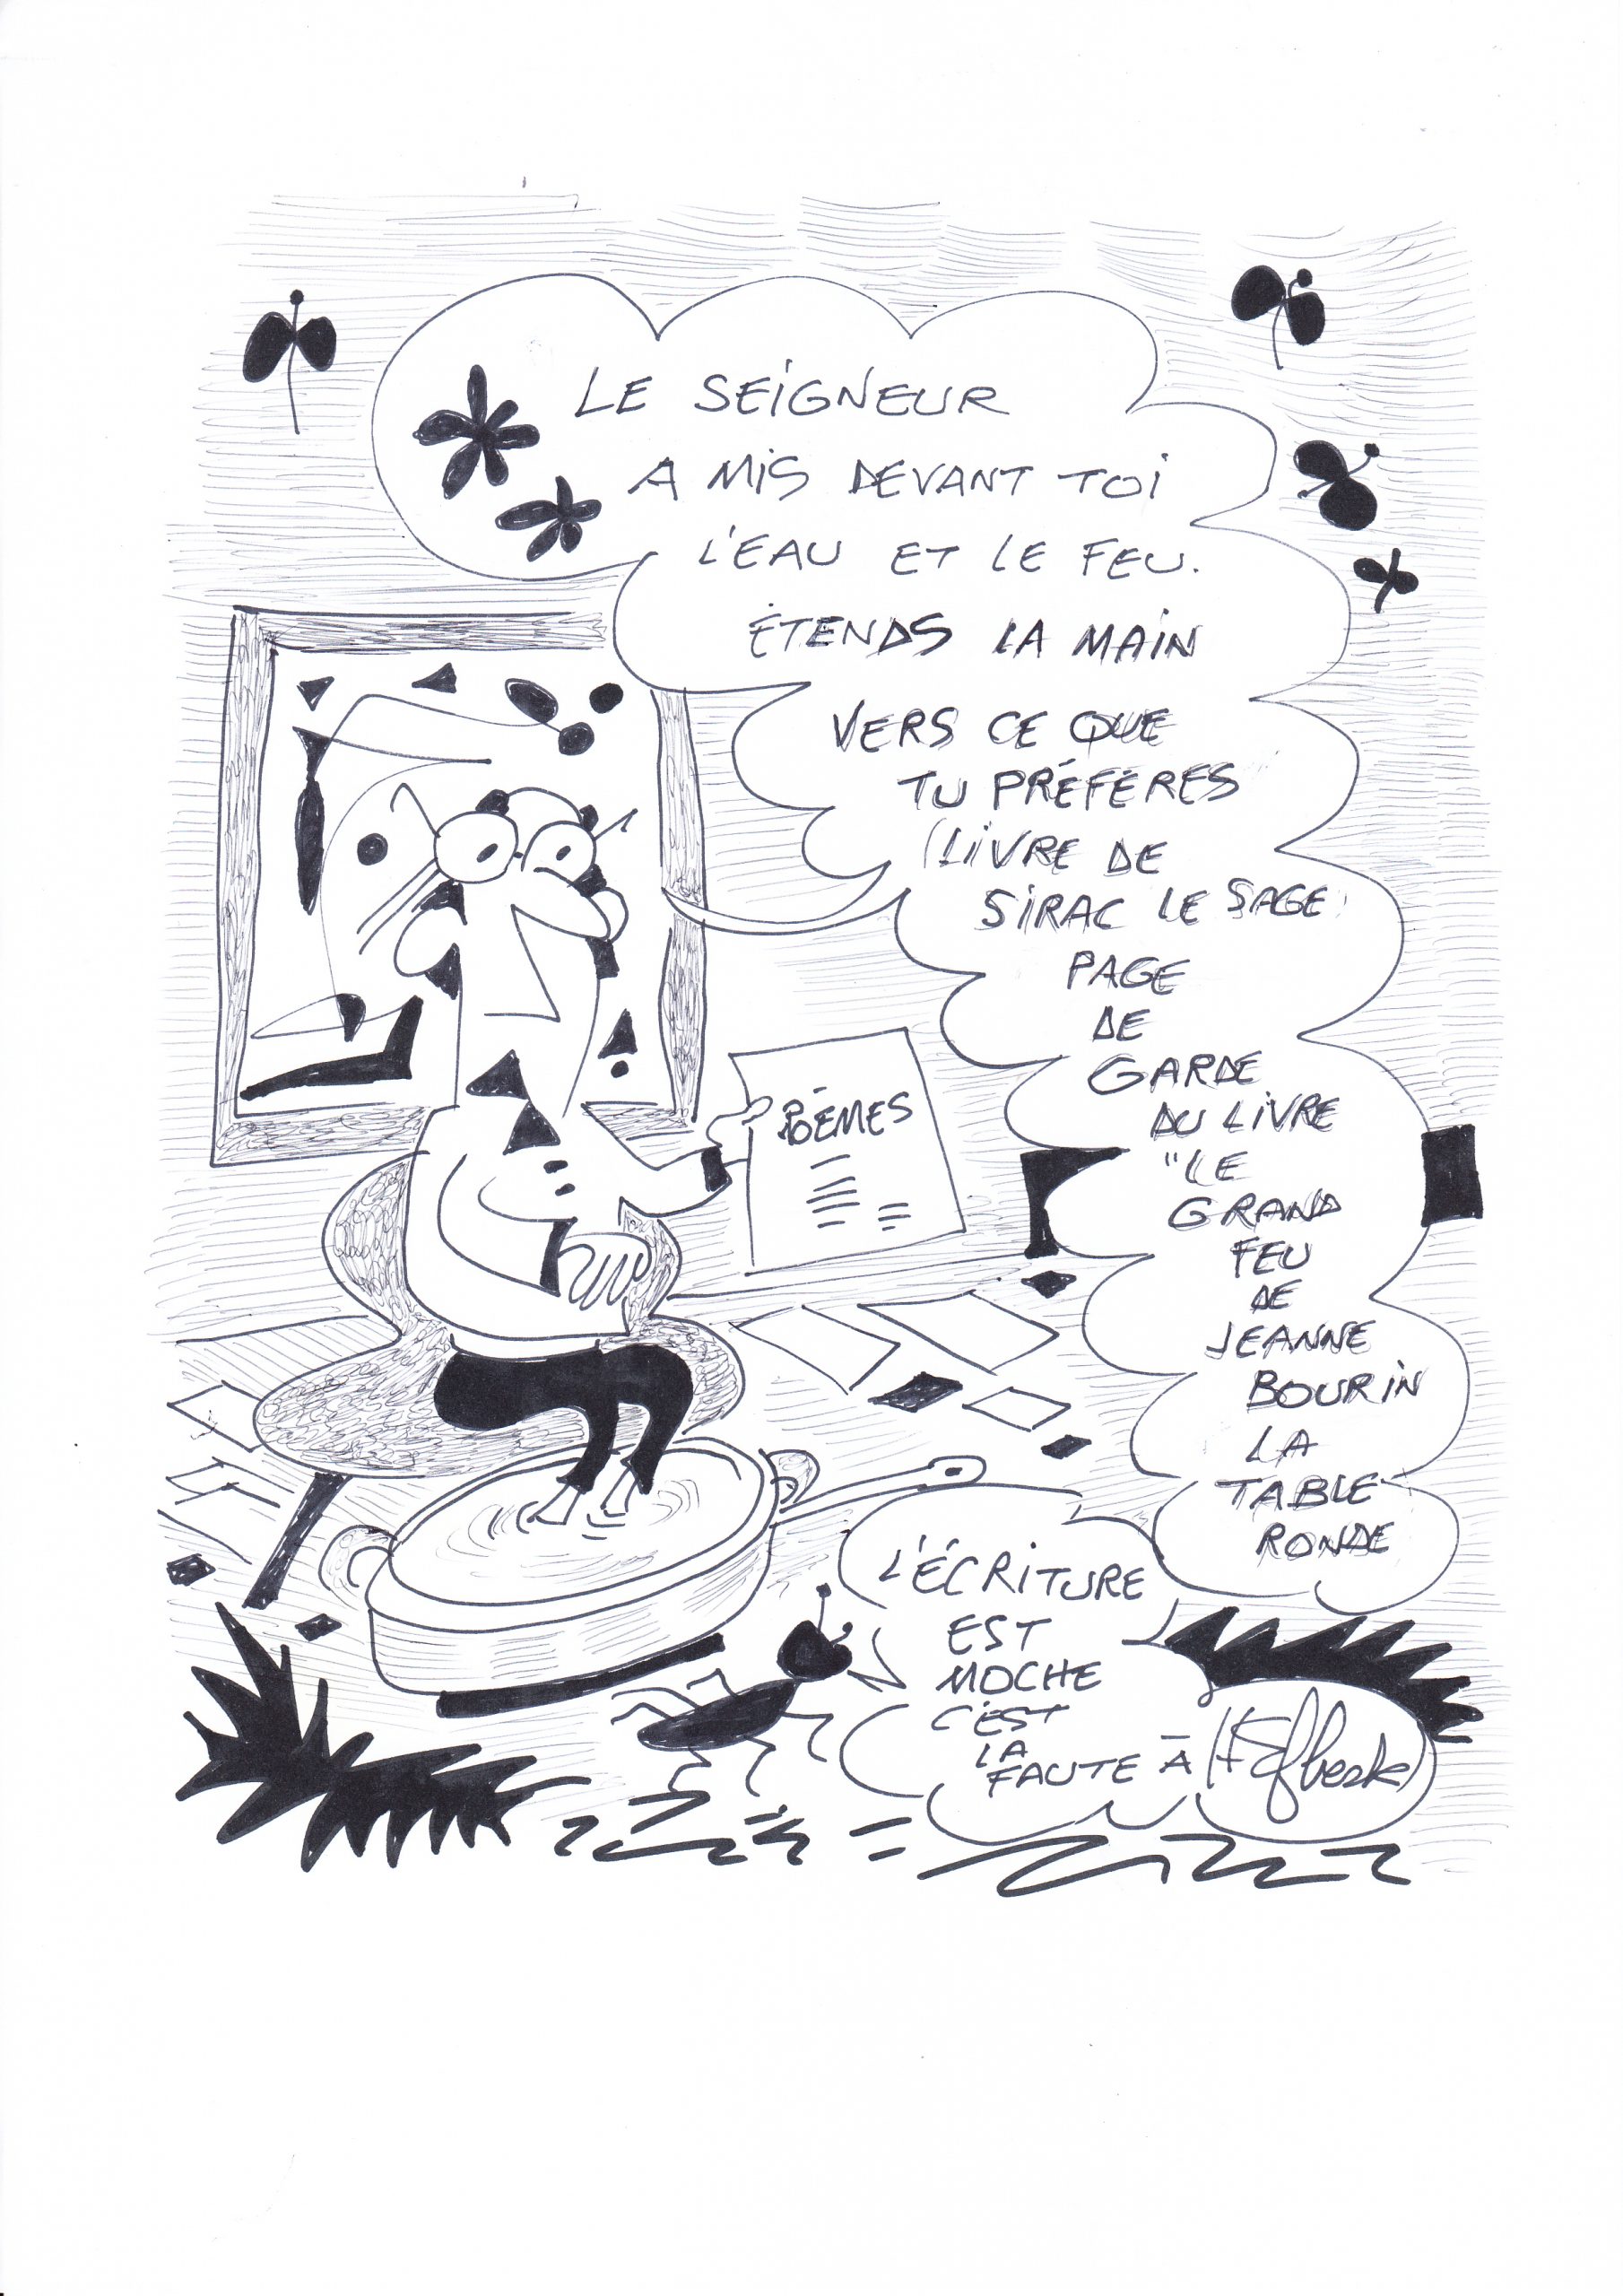 LE SEIGNEUR
A MIS DEVANT TOI
L'EAU ET LE FEU.
ÉTENDS LA MAIN
VERS CE QUE
TU PRÉFÉRES
(LIVRE DE
SIRAC LE SAGE)
PAGE
DE
GARDE
DU LIVRE
"LE
GRAND
FEU
DE
JEANNE
BOURIN
LA
TABLE
RONDE
POÈMES
L'ÉCRITURE
EST
MOCHE
C'EST
LA
FAUTE À